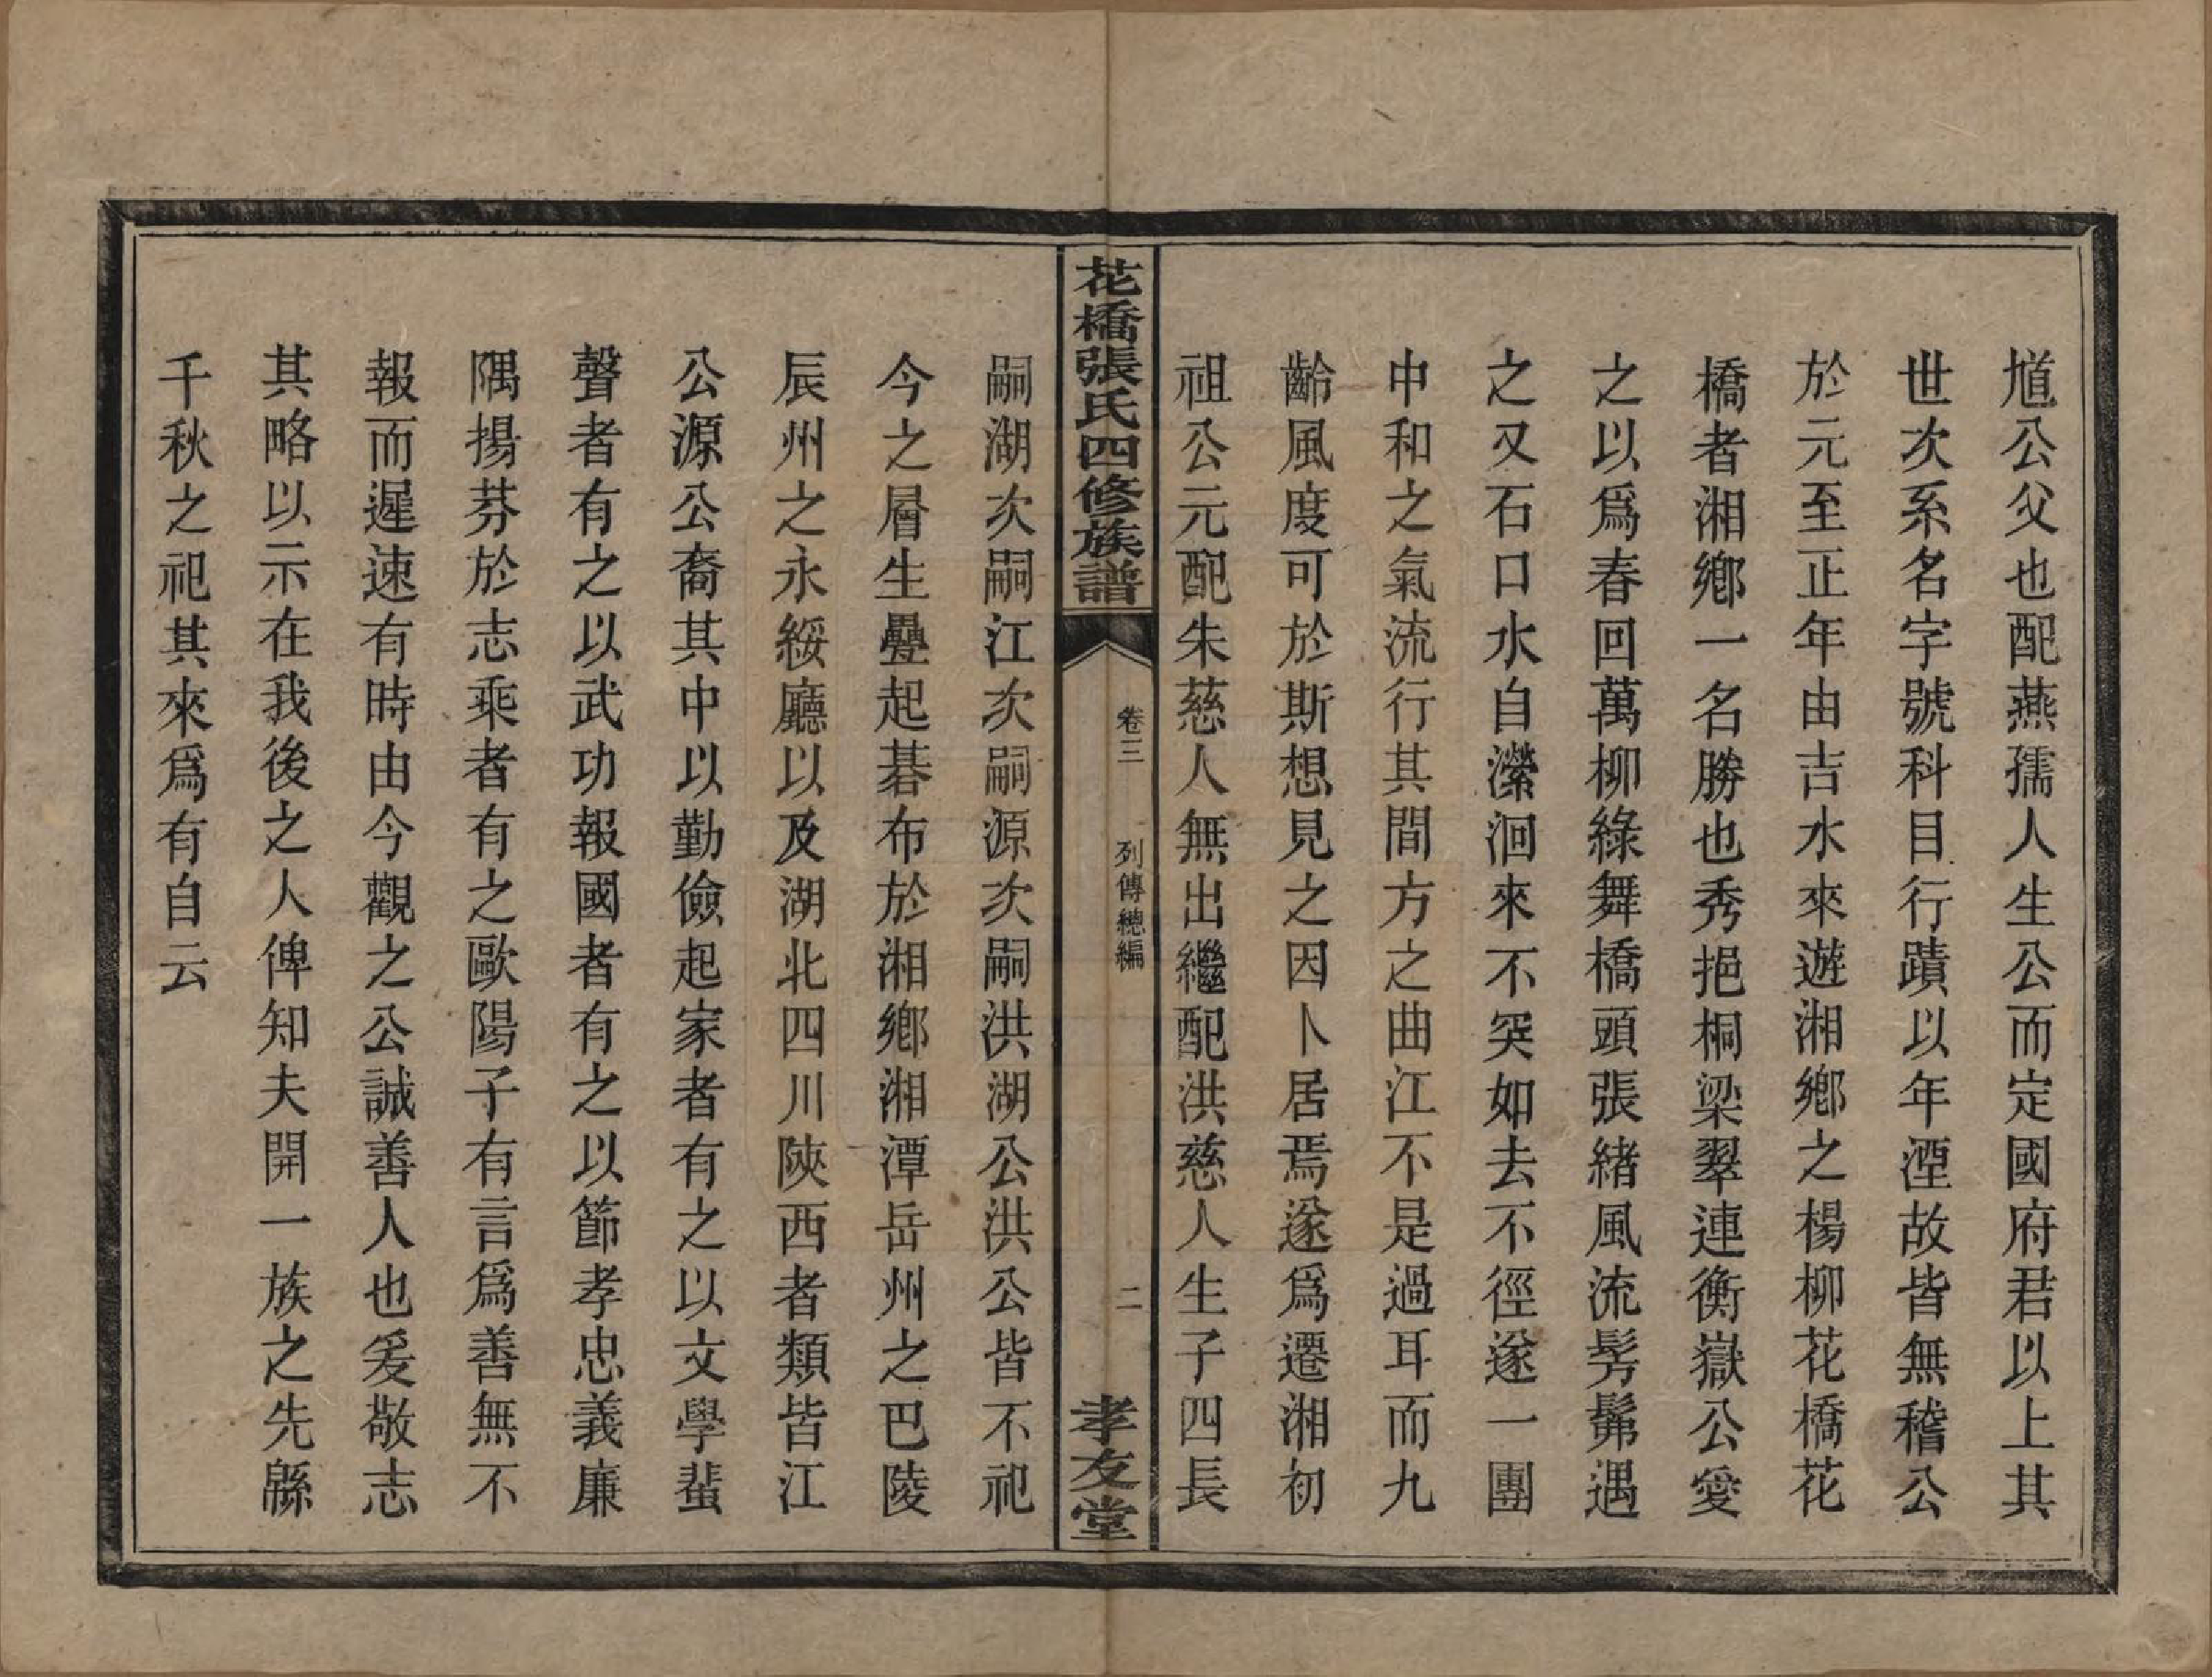 馗公父也配燕孺人生公而定國府君以上其
世次系名字號科目行蹟以年湮故皆無稽公
於元至正年由吉水來遊湘鄉之楊柳花橋花
橋者湘鄉一名勝也秀挹桐梁翠連衡嶽公愛
之以爲春回萬柳綠舞橋頭張緒風流髣髴遇
之又石口水自瀠洄來不突如去不徑遂一團
中和之氣流行其間方之曲江不是過耳而九
齡風度可於斯想見之因卜居焉遂爲遷湘初
祖公元配朱慈人無出繼配洪慈人生子四長
花橋張氏四修族譜
卷三
列傳總編
二
孝友堂
嗣湖次嗣江次嗣源次嗣洪湖公洪公皆不祀
今之層生疊起碁布於湘鄉湘潭岳州之巴陵
辰州之永綏廳以及湖北四川陝西者類皆江
公源公裔其中以勤儉起家者有之以文學蜚
聲者有之以武功報國者有之以節孝忠義廉
隅揚芬於志乘者有之歐陽子有言爲善無不
報而遲速有時由今觀之公誠善人也爰敬志
其略以示在我後之人俾知夫開一族之先緜
千秋之祀其來爲有自云